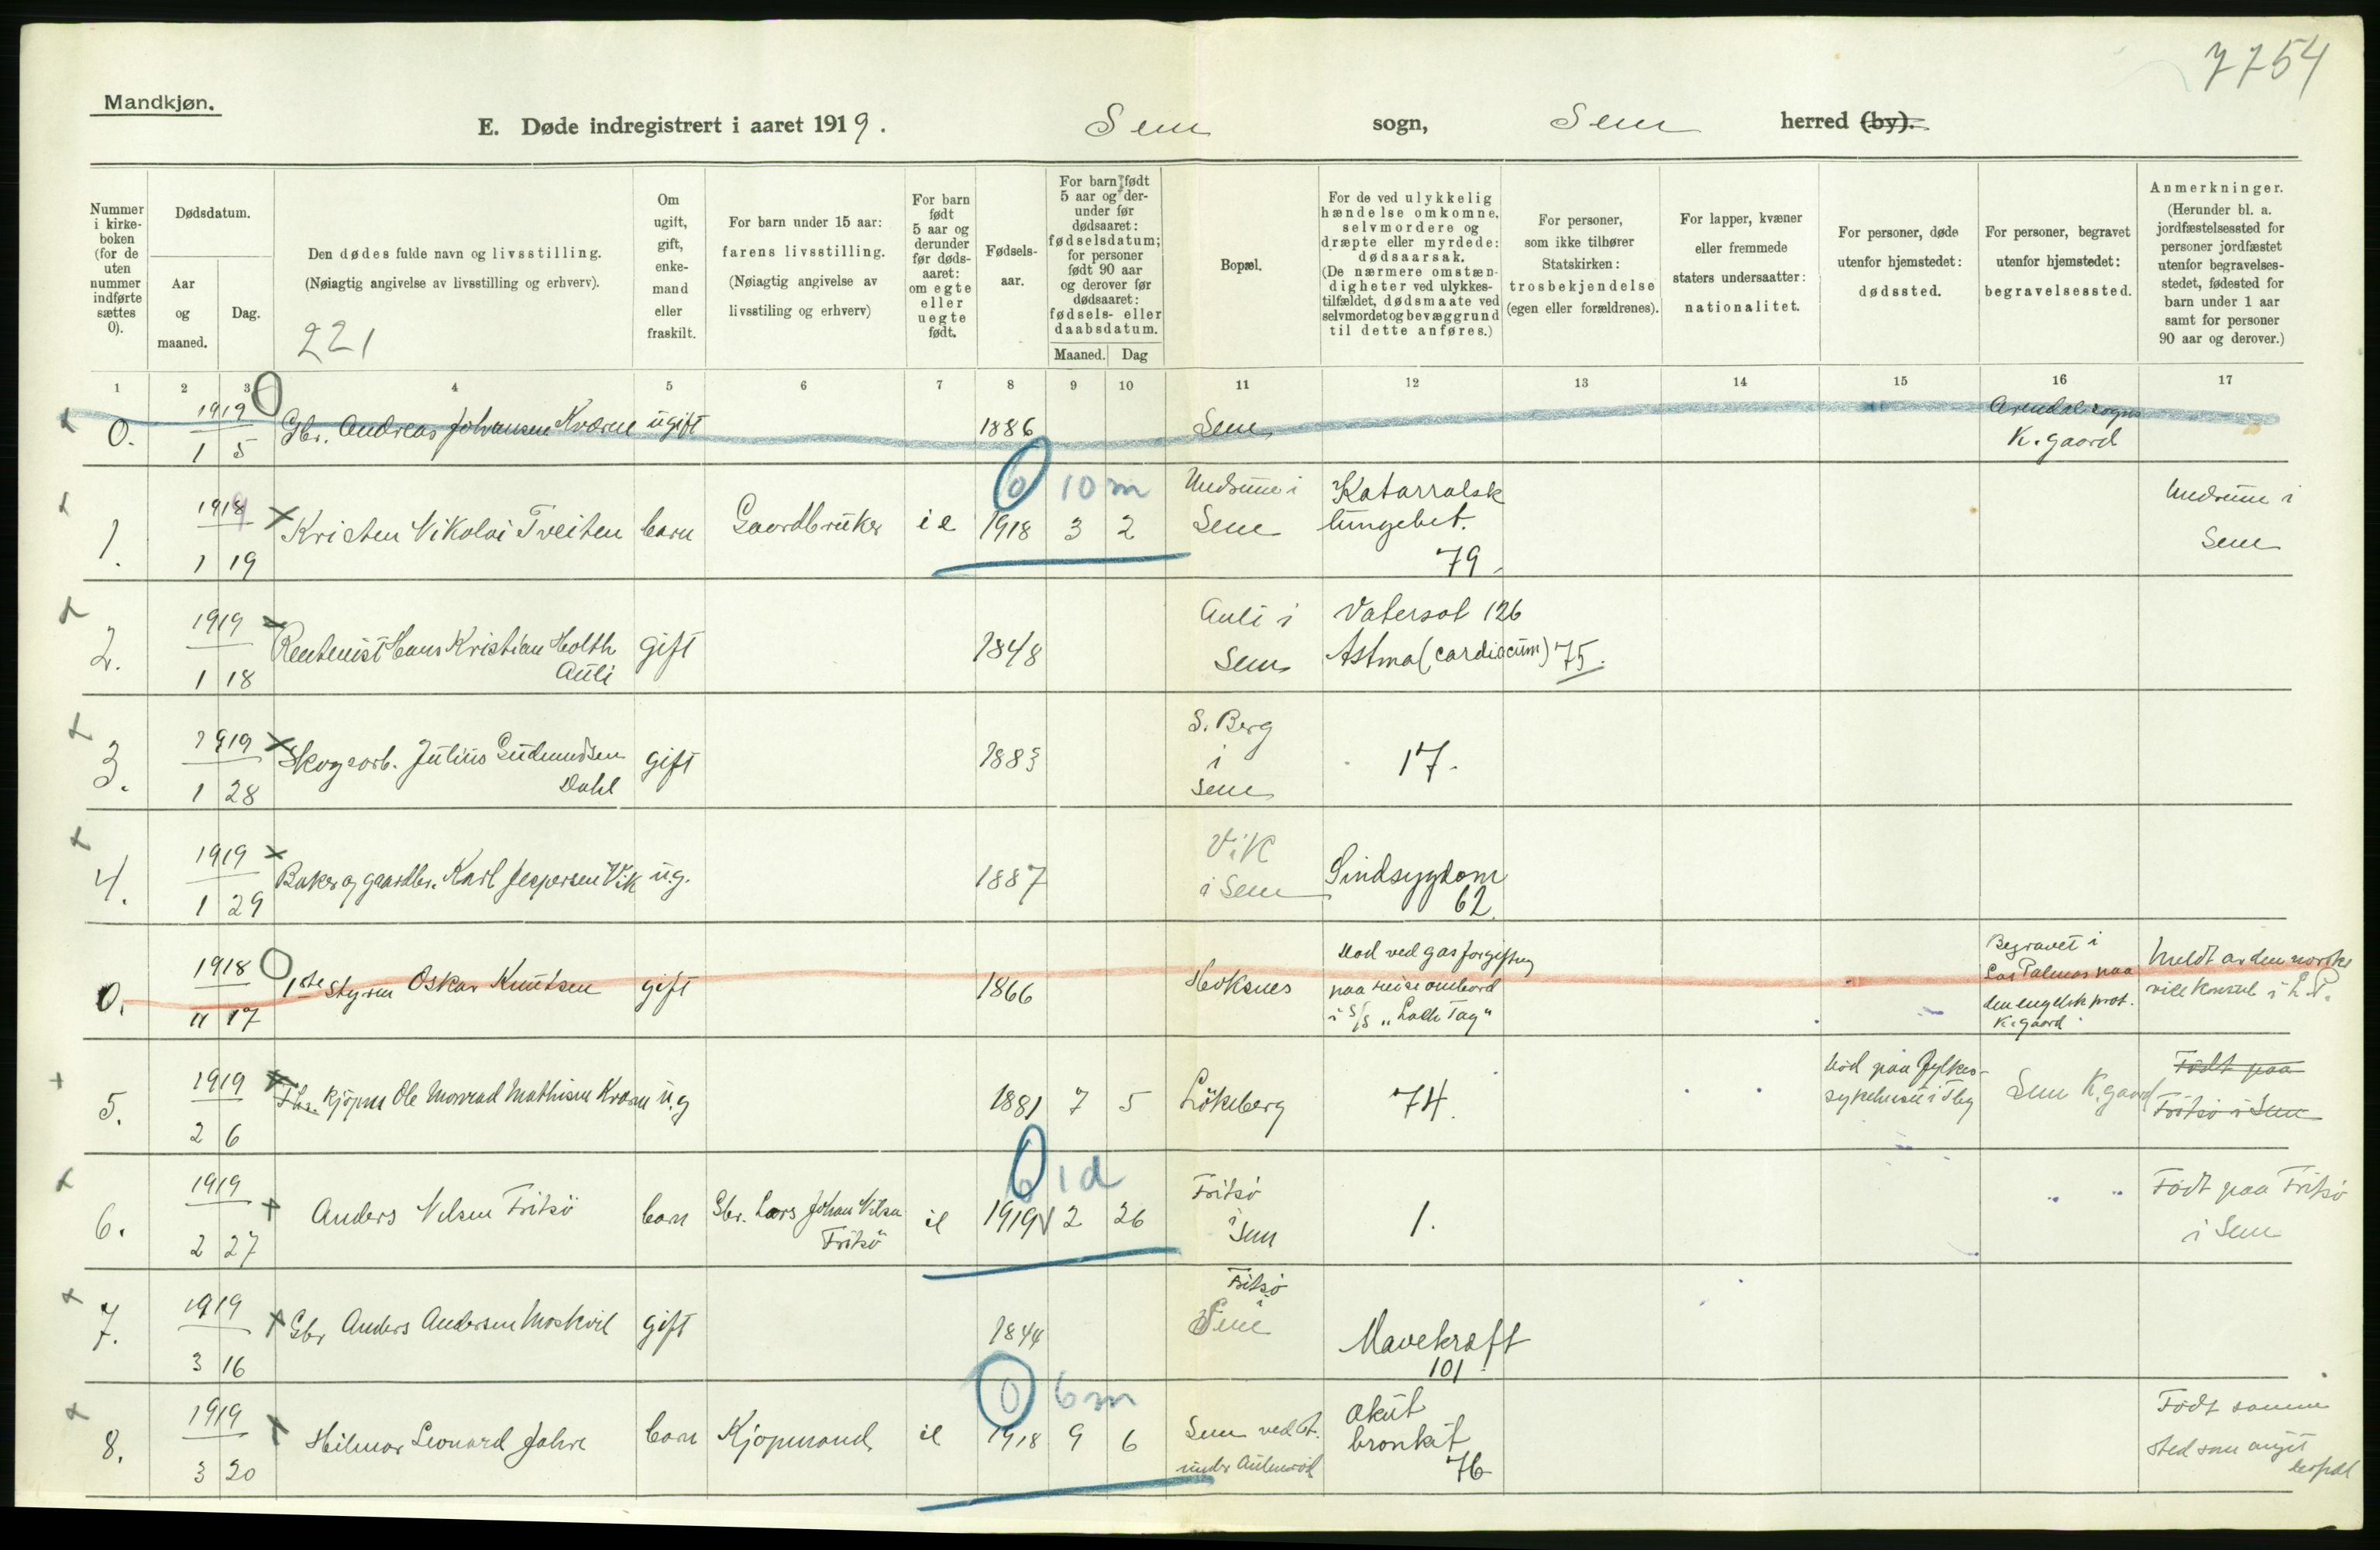 7754
Mandkjøn.
E. Døde indregistrert i aaret 1919. Sem sogn, Sem herred (by).
Nummer i kirke-boken (for de uten nummer indførte sættes 0).
Dødsdatum.
Aar og maaned.
Dag.
Den dødes fulde navn og livsstilling.
(Nøiagtig angivelse av livsstilling og erhverv).
221
Om ugift, gift, enke-mand eller fraskilt.
For barn under 15 aar: farens livsstilling.
(Nøiagtig angivelse av livsstiling og erhverv)
For barn født 5 aar og derunder før døds-aaret: om egte eller uegte født.
Fødsels-aar.
For barn født 5 aar og der-under før dødsaaret: fødselsdatum; for personer født 90 aar og derover før dødsaaret: fødsels- eller daabsdatum.
Maaned. Dag
Bopæl.
For de ved ulykkelig hændelse omkomne, selvmordere og dræpte eller myrdede: dødsaarsak.
(De nærmere omstæn-digheter ved ulykkes-tilfældet, dødsmaate ved selvmordet og bevæggrund til dette anføres.)
For personer, som ikke tilhører Statskirken: trosbekjendelse (egen eller forældrenes).
For lapper, kvæner eller fremmede staters undersaatter: nationalitet.
For personer, døde utenfor hjemstedet: dødssted.
For personer, begravet utenfor hjemstedet: begravelsessted.
Anmerkninger.
(Herunder bl. a. jordfæstelsessted for personer jordfæstet utenfor begravelses-stedet, fødested for barn under 1 aar samt for personer 90 aar og derover.)
1 2 3 4 5 6 7 8 9 10 11 12 13 14 15 16 17
0. 1919 1 5 Gbr. Andreas Johansen Kværne ugift 1886 Sem Arendal sogns K.gaard
0 10 m
1. 1919 1 19 Kristen Nikolai Tveiten barn Gaardbruker 1918 3 2 Undrum i Sem Katarralsk lungebet. 79. Undrum i Sem
2. 1919 1 18 Rentenist Hans Kristian Holth Auli gift 1848 Auli i Sem Vatersot 126 Astma (cardiacum) 75.
3. 1919 1 28 Skogsarb. Julius Gudmundsen Dahl gift 1883 S. Berg i Sem 17.
4. 1919 1 29 Baker og gaardbr. Karl Jespersen Vik u.g. 1887 Vik i Sem Sindsygdom 62.
0. 1918 11 17 1ste Styrm Oskar Knutsen gift 1866 Død ved gasforgiftng paa reise ombord i S/S Begravet i Las Palmas paa den engelsk prot. K.gaard meldt av den norske vicekonsul i L.P.
5. 1919 2 6 Kjøpm Ole Monrad Mathisen u.g 1881 7 5 Løkeberg 74. Død paa Fylkes-sykehuset i Tbg Sem K.gaard Født paa Fritsø i Sem
0 1 d
6. 1919 2 27 Anders Nilsen Fritsö barn Gbr. Lars Johan Nilsen Fritsö 1919 2 26 Fritsö i Sem 1. Født paa Fritsö i Sem
7. 1919 3 16 Gbr Anders Andersen gift 1844 Fritsö i Sem Mavekræft 101.
0 6 m
8. 1919 3 20 Hilmar Leonard Jahre barn Kjøpmand 1918 9 6 Sem ved st. under akut bronkit 76 Født samme sted som bopæl